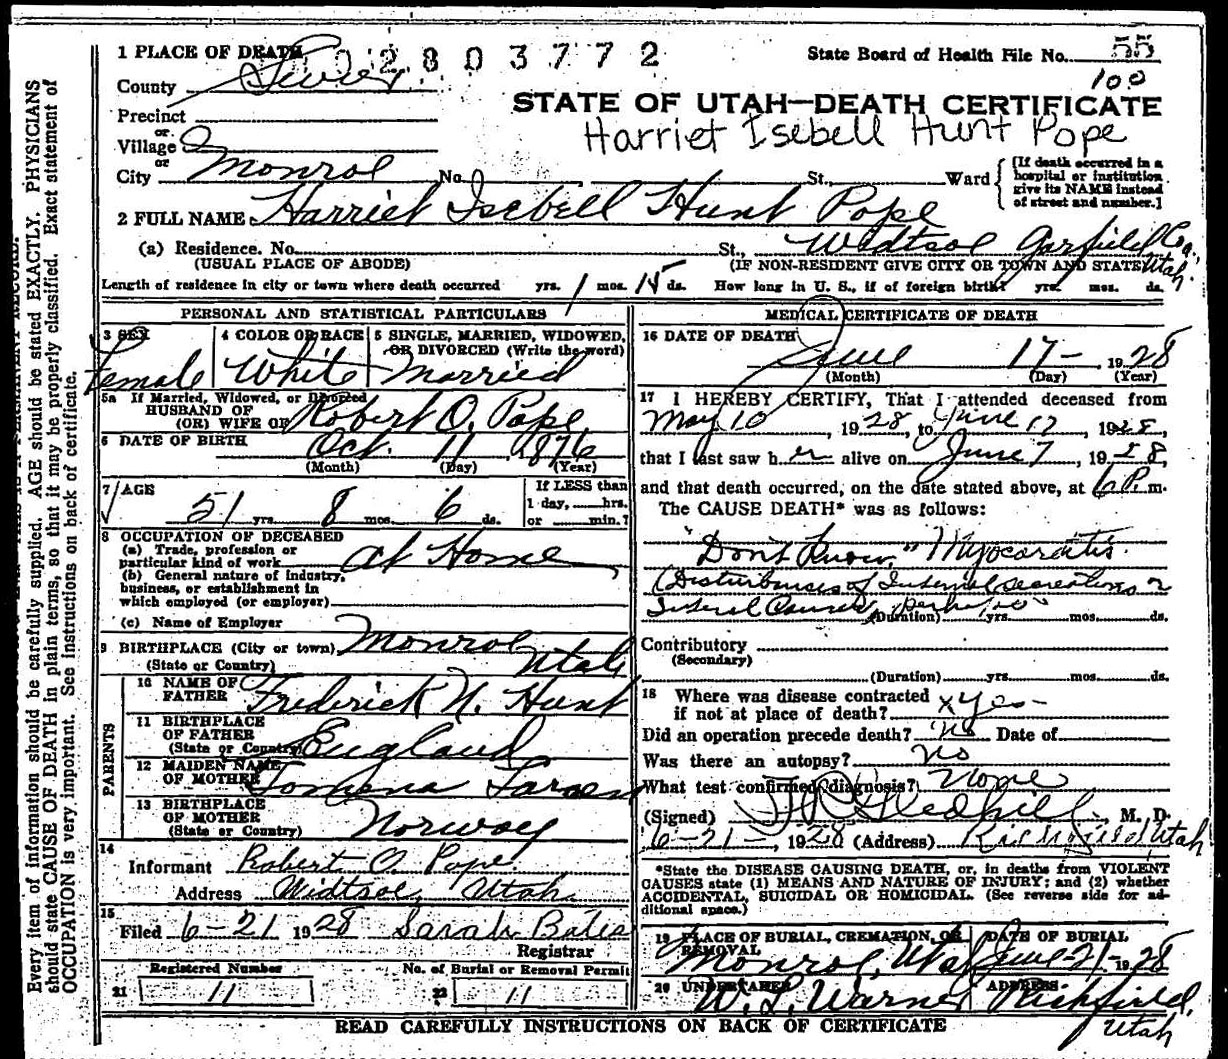 1 PLACE OF DEATH
02803772
State Board of Health File No. 55
100
County Sevier
STATE OF UTAH—DEATH CERTIFICATE
Harriet Isebell Hunt Pope
Precinct
or
Village
or
City Monroe No. St., Ward
[If death occurred in a hospital or institution give its NAME instead of street and number.]
2 FULL NAME Harriet Isebell Hunt Pope
(a) Residence. No. St., Widtsoe Garfield Co., Utah.
(USUAL PLACE OF ABODE) (IF NON-RESIDENT GIVE CITY OR TOWN AND STATE)
Length of residence in city or town where death occurred yrs. 1 mos. 15 ds. How long in U. S., if of foreign birth? yrs. mos. ds.
PERSONAL AND STATISTICAL PARTICULARS
3 SEX Female
4 COLOR OR RACE White
5 SINGLE, MARRIED, WIDOWED, OR DIVORCED (Write the word) Married
5a If Married, Widowed, or Divorced
HUSBAND OF
(OR) WIFE OF Robert O. Pope
6 DATE OF BIRTH Oct. 11 1876
(Month) (Day) (Year)
7 AGE 51 yrs. 8 mos. 6 ds.
If LESS than
1 day, hrs.
or min.?
8 OCCUPATION OF DECEASED
(a) Trade, profession or
particular kind of work at Home
(b) General nature of industry,
business, or establishment in
which employed (or employer)
(c) Name of Employer
9 BIRTHPLACE (City or town) Monroe
(State or Country) Utah
PARENTS
10 NAME OF
FATHER Frederick N. Hunt
11 BIRTHPLACE
OF FATHER
(State or Country) England
12 MAIDEN NAME
OF MOTHER
13 BIRTHPLACE
OF MOTHER
(State or Country) Norway
14
Informant Robert O. Pope
Address Widtsoe, Utah.
15
Filed 6-21 1928 Sarah Bates
Registrar
Registered Number
21 11
No. of Burial or Removal Permit
22 11
MEDICAL CERTIFICATE OF DEATH
16 DATE OF DEATH
June 17- 1928
(Month) (Day) (Year)
17 I HEREBY CERTIFY, That I attended deceased from
May 10, 1928, to June 17, 1928,
that I last saw her alive on June 7, 1928,
and that death occurred, on the date stated above, at 6 P. m.
The CAUSE DEATH* was as follows:
"Don't Know." Myocarditis.
(Disturbances of Internal Secretions
(Duration) yrs. mos. ds.
Contributory
(Secondary)
(Duration) yrs. mos. ds.
18 Where was disease contracted
if not at place of death? x yes-
Did an operation precede death? No Date of
Was there an autopsy? no
What test confirmed diagnosis? None
(Signed) J. R. Gledhill, M. D.
6-21-, 1928 (Address) Richfield Utah
*State the DISEASE CAUSING DEATH, or, in deaths from VIOLENT
CAUSES state (1) MEANS AND NATURE OF INJURY; and (2) whether
ACCIDENTAL, SUICIDAL OR HOMICIDAL. (See reverse side for ad-
ditional space.)
19 PLACE OF BURIAL, CREMATION, OR
REMOVAL
Monroe, Utah
DATE OF BURIAL
June-21-1928
20 UNDERTAKER
W. L. Warner
ADDRESS
Richfield,
Utah
READ CAREFULLY INSTRUCTIONS ON BACK OF CERTIFICATE
Every item of information should be carefully supplied. AGE should be stated EXACTLY. PHYSICIANS
should state CAUSE OF DEATH in plain terms, so that it may be properly classified. Exact statement of
OCCUPATION is very important. See instructions on back of certificate.